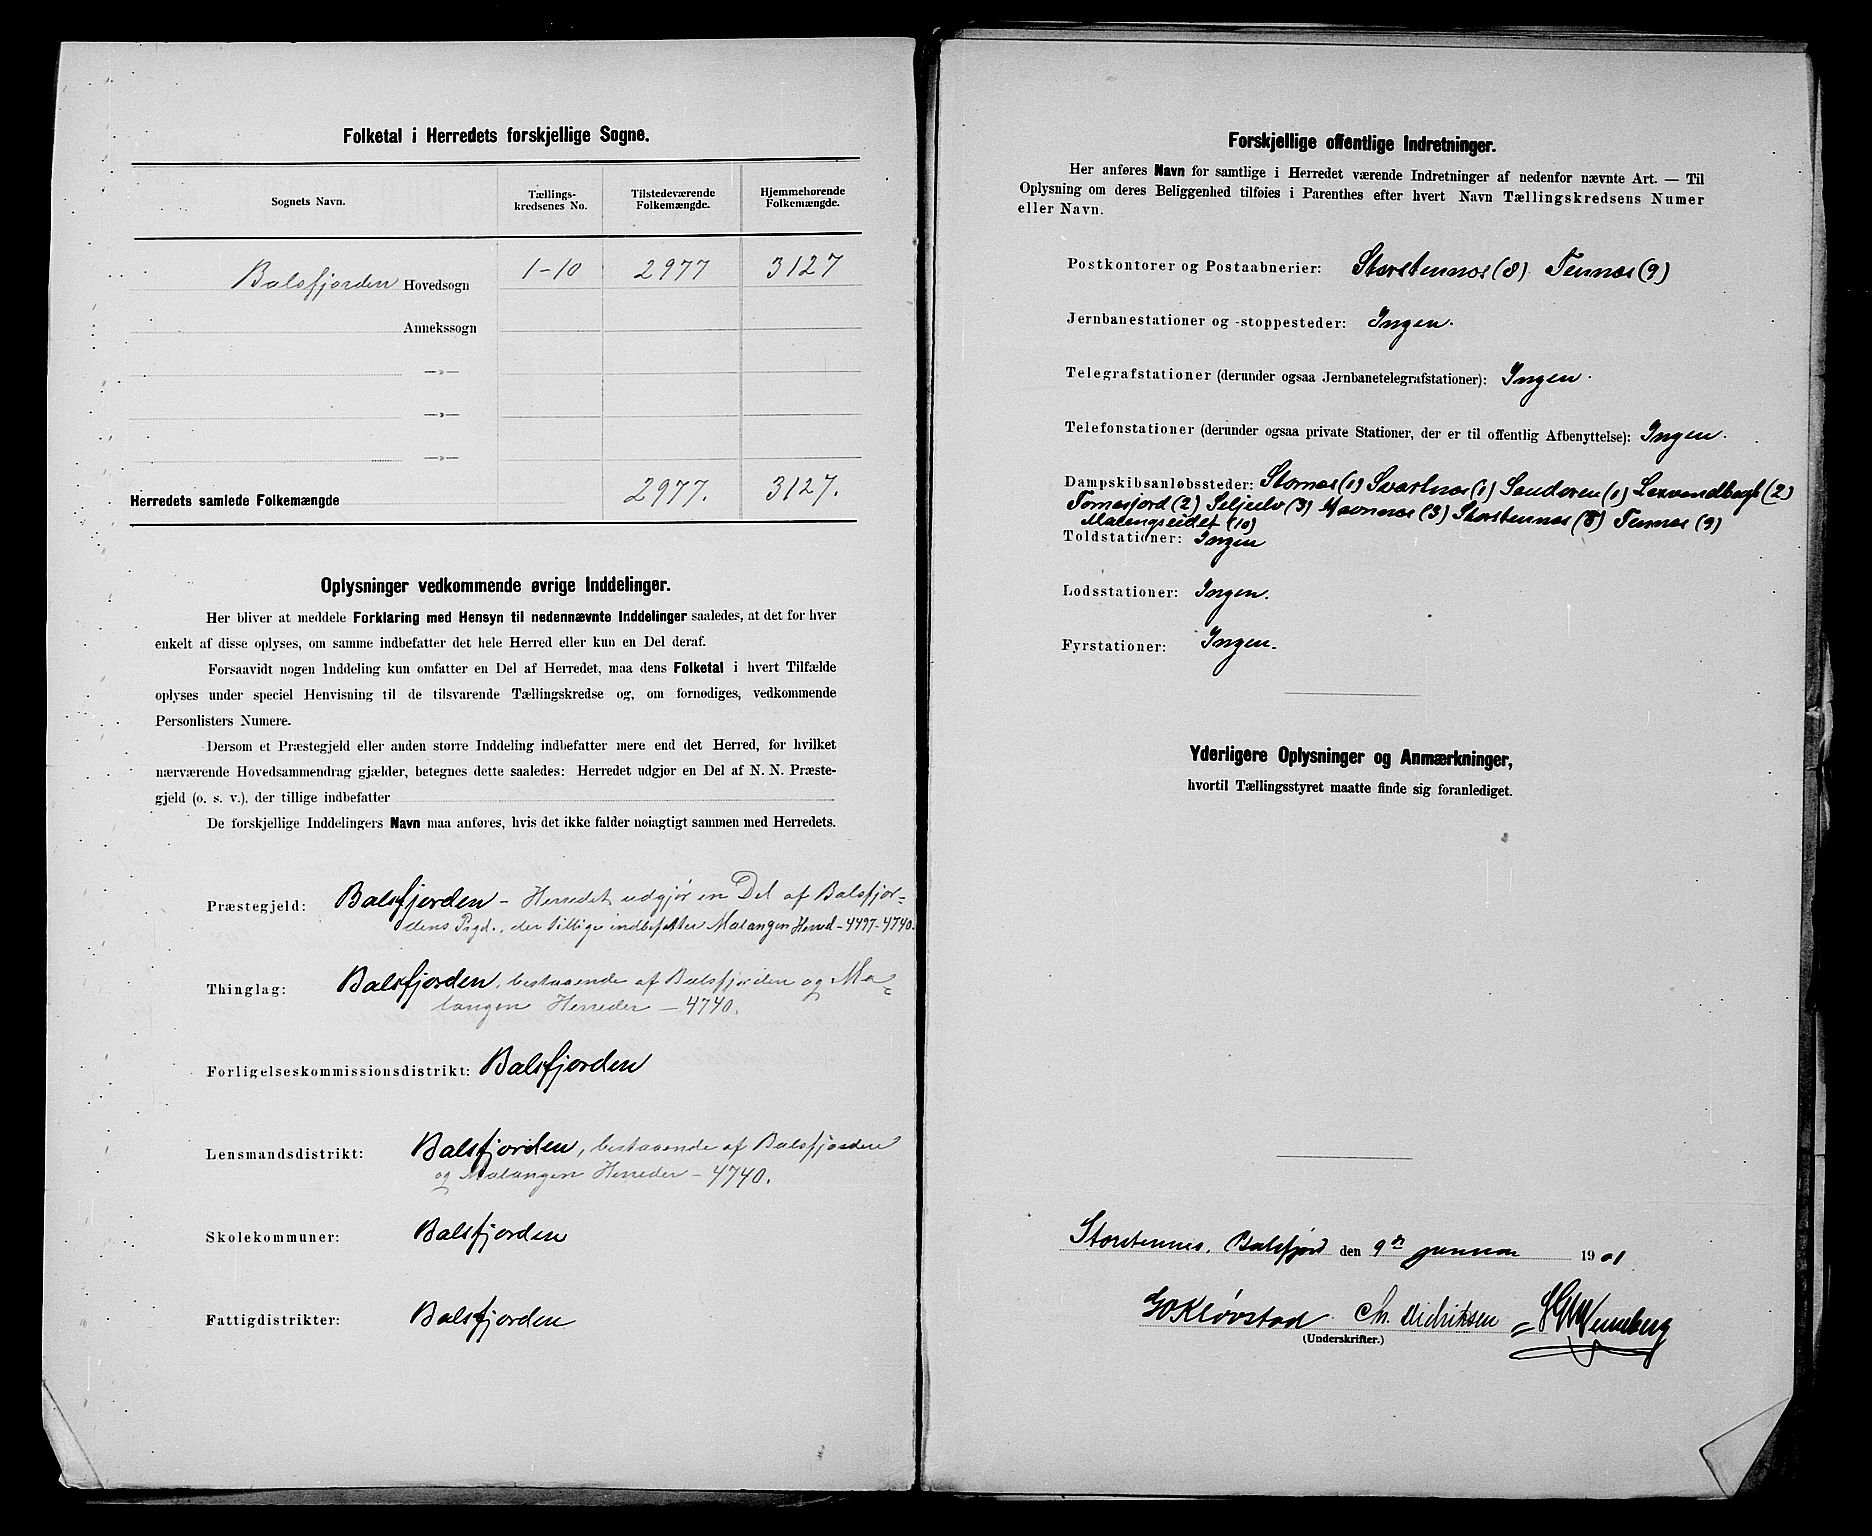 Folketal i Herredets forskjellige Sogne.
Sognets Navn. Tællings-kredsenes No. Tilstedeværende Folkemængde. Hjemmehørende Folkemængde.
Balsfjorden Hovedsogn 1-10 2977 3127
Annekssogn
—»—
—»—
—»—
Herredets samlede Folkemængde 2977. 3127.
Oplysninger vedkommende øvrige Inddelinger.
Her bliver at meddele Forklaring med Hensyn til nedennævnte Inddelinger saaledes, at det for hver
enkelt af disse oplyses, om samme indbefatter det hele Herred eller kun en Del deraf.
Forsaavidt nogen Inddeling kun omfatter en Del af Herredet, maa dens Folketal i hvert Tilfælde
oplyses under speciel Henvisning til de tilsvarende Tællingskredse og, om fornødiges, vedkommende
Personlisters Numere.
Dersom et Præstegjeld eller anden større Inddeling indbefatter mere end det Herred, for hvilket
nærværende Hovedsammendrag gjælder, betegnes dette saaledes: Herredet udgjør en Del af N. N. Præste-
gjeld (o. s. v.), der tillige indbefatter
De forskjellige Inddelingers Navn maa anføres, hvis det ikke falder nøiagtigt sammen med Herredets.
Præstegjeld: Balsfjorden - Herredet udgjør en Del af Balsfjor-
dens Prgd., der tillige indbefatter Malangen Herred - 4497-4740.
Thinglag: Balsfjorden, bestaaende af Balsfjorden og Ma-
langen Herreder - 4740.
Forligelseskommissionsdistrikt: Balsfjorden
Lensmandsdistrikt: Balsfjorden, bestaaende af Balsfjorden
og Malangen Herreder - 4740.
Skolekommuner: Balsfjorden
Fattigdistrikter: Balsfjorden
Forskjellige offentlige Indretninger.
Her anføres Navn for samtlige i Herredet værende Indretninger af nedenfor nævnte Art. — Til
Oplysning om deres Beliggenhed tilføies i Parenthes efter hvert Navn Tællingskredsens Numer
eller Navn.
Postkontorer og Postaabnerier: Storstennes (8) Tennes (9)
Jernbanestationer og -stoppesteder: Ingen.
Telegrafstationer (derunder ogsaa Jernbanetelegrafstationer): Ingen.
Telefonstationer (derunder ogsaa private Stationer, der er til offentlig Afbenyttelse): Ingen.
Dampskibsanløbssteder: Stornes (1) Svartnes (1) Sandøren (1) Laxvandbugt (2)
Tomasjord (2) Seljeelv (3) Havnnes (3) Storstennes (8) Tennes (9)
Malangseidet (10)
Toldstationer: Ingen
Lodsstationer: Ingen.
Fyrstationer: Ingen.
Yderligere Oplysninger og Anmærkninger,
hvortil Tællingsstyret maatte finde sig foranlediget.
Storstennes, Balsfjord den 9de januar 1901.
Kløvstad Chr. Didriksen Wennberg
(Underskrifter.)